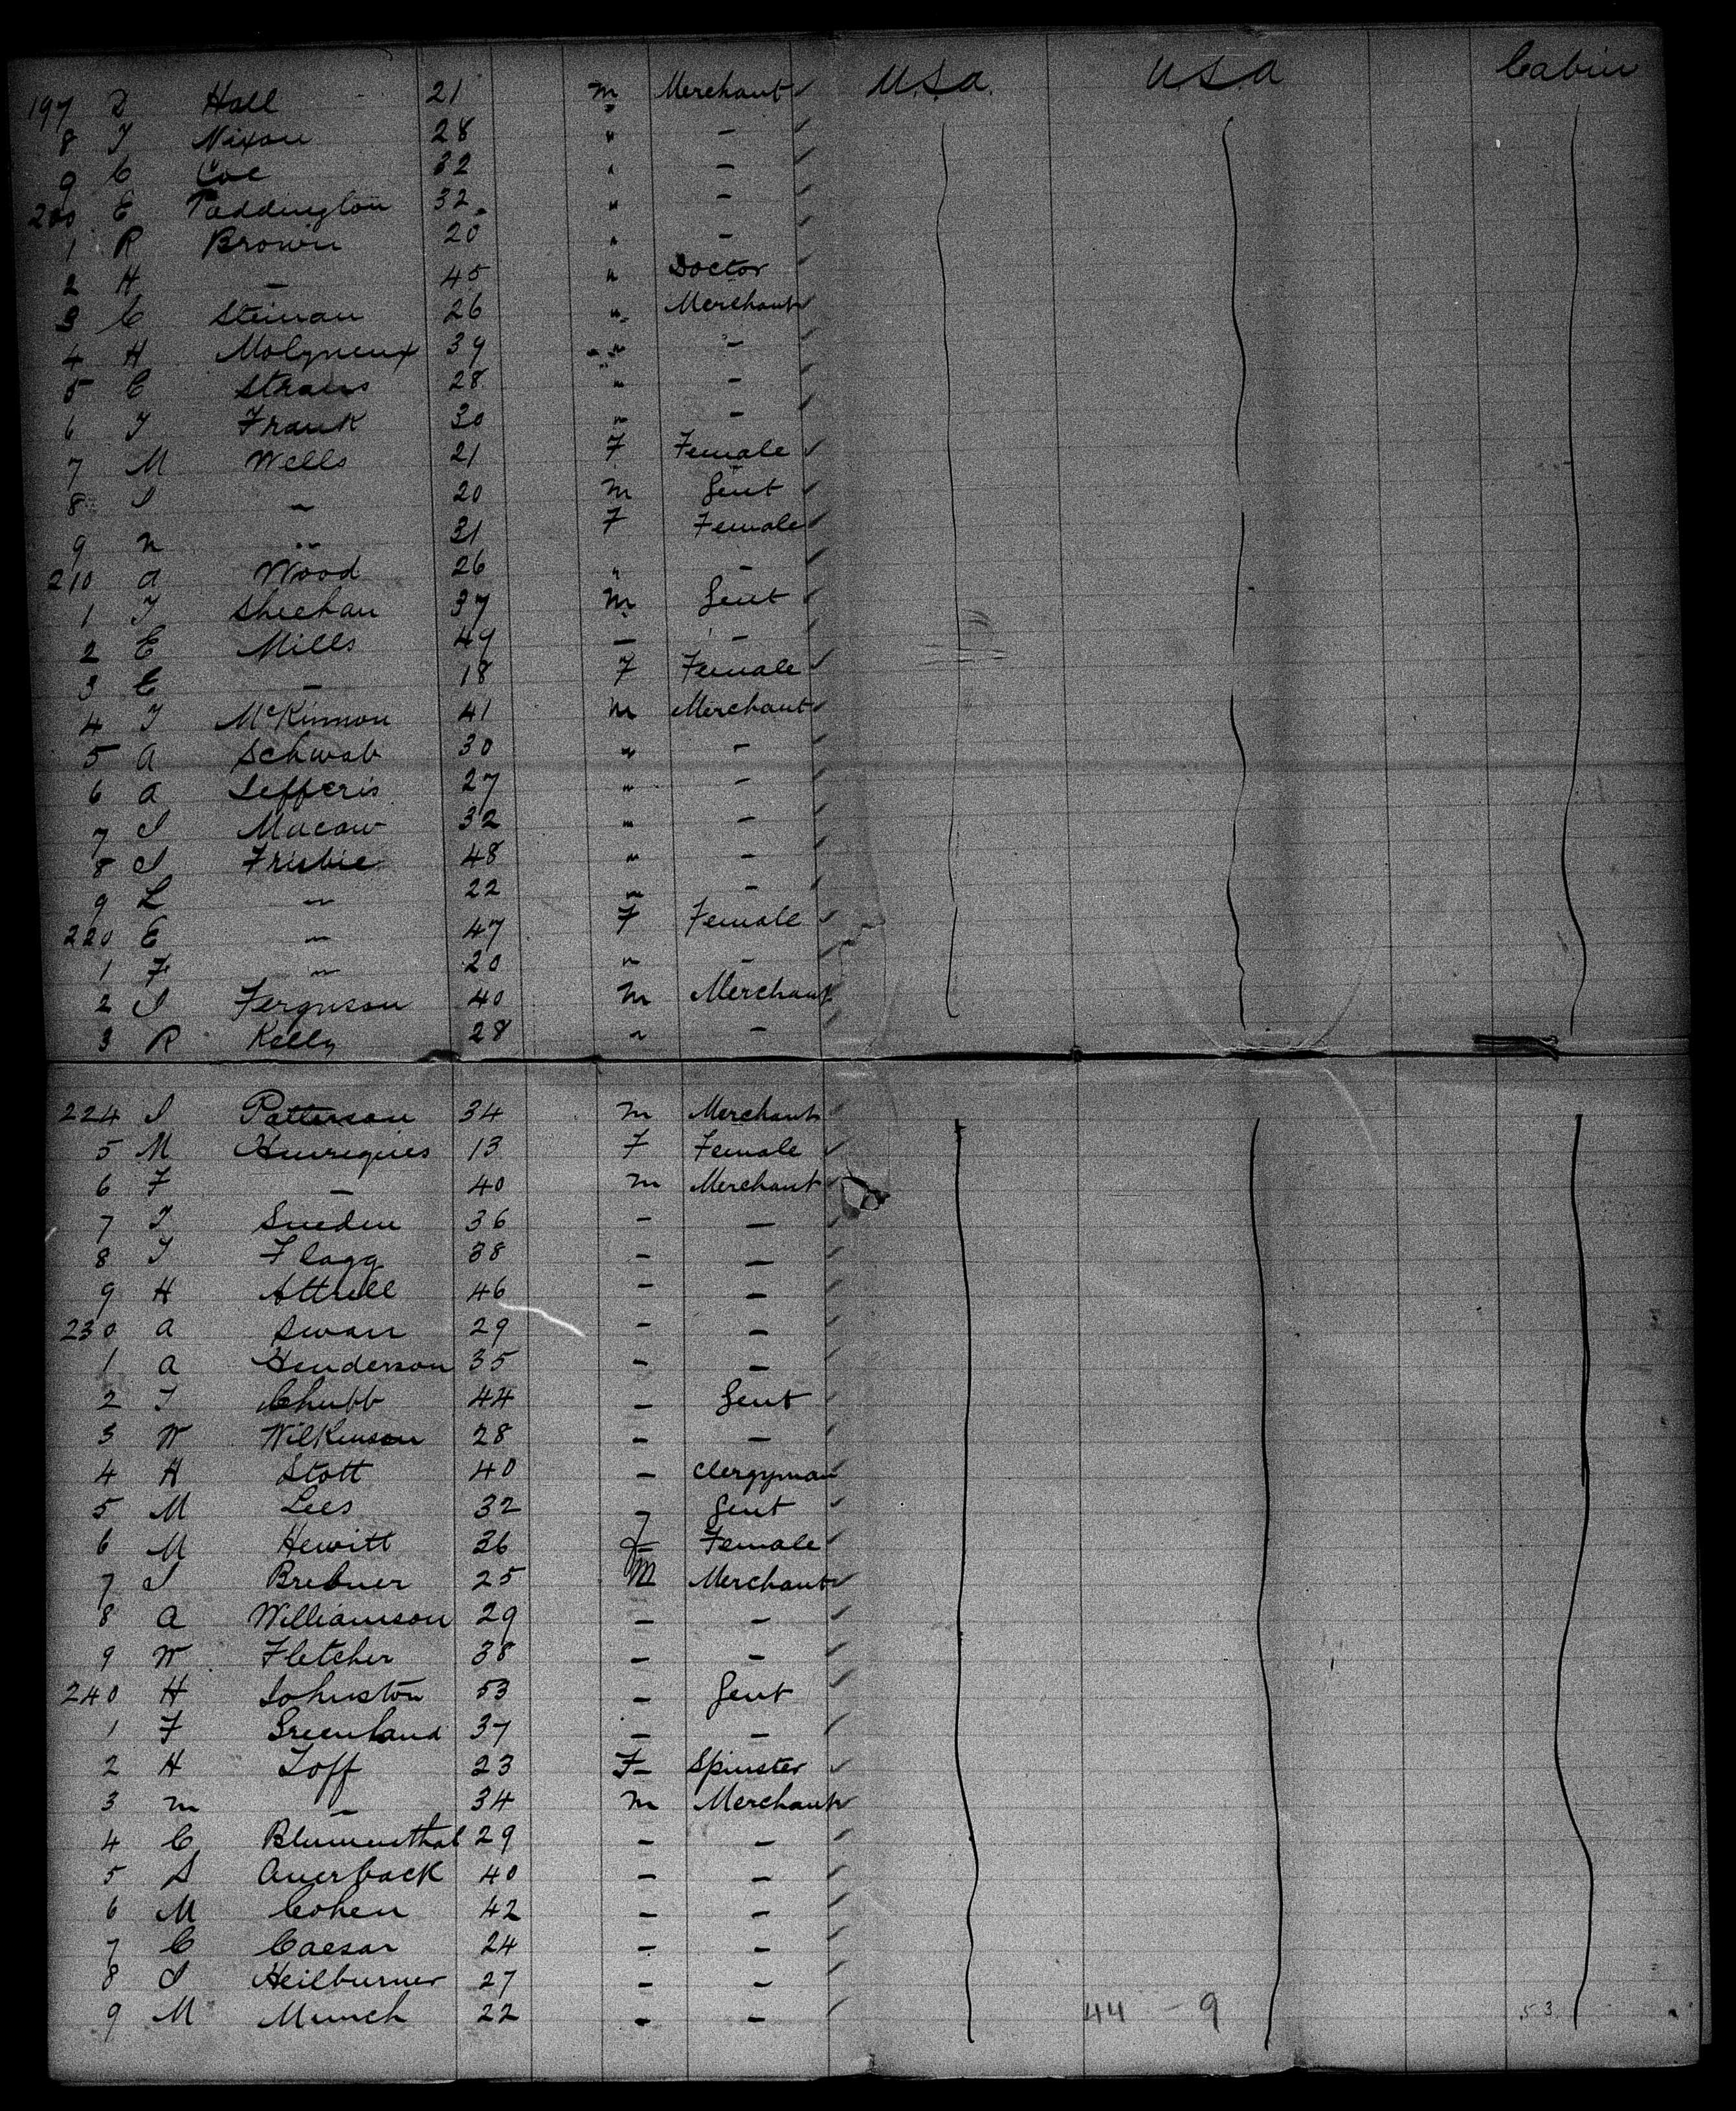 197 D Hall 21 m Merchant ✓ U.S.a. U.S.a Cabin
8 J Nixon 28 " –
9 C Coe 32 " –
200 E Paddington 32 " –
1 R Brown 20 " –
2 H – 45 " Doctor
3 C Steinau 26 " Merchant
4 H Molyneux 39 " –
5 C Straus 28 " –
6 J Frank 30 " –
7 M Wells 21 F Female
8 J " 20 m Gent
9 n " 31 F Female
210 a Wood 26 " –
1 J Sheehan 37 m Gent
2 E Mills 49 – –
3 C – 18 F Female
4 J McKinnon 41 m Merchant
5 a Schwab 30 " –
6 a Jefferis 27 " –
7 J Macaw 32 " –
8 J Frisbie 48 " –
9 L " 22 " –
220 E " 47 F Female
1 F " 20 " –
2 J Ferguson 40 m Merchant
3 R Kelly 28 " –
224 J Patterson 34 m Merchant
5 M Henriques 13 F Female
6 F – 40 m Merchant
7 J Sneden 36 – –
8 J Flagg 38 – –
9 H Attrill 46 – –
230 a Swan 29 – –
1 a Henderson 35 – –
2 J Chubb 44 – Gent
3 W Wilkinson 28 – –
4 H Stott 40 – Clergyman
5 M Lees 32 – Gent
6 M Hewitt 36 F Female
7 J Brebner 25 M Merchant
8 a Williamson 29 – –
9 W Fletcher 38 – –
240 H Johnston 53 – Gent
1 F Greenland 37 – –
2 H Joff 23 F Spinster
3 m – 34 m Merchant
4 C Blumenthal 29 – –
5 S Auerback 40 – –
6 M Cohen 42 – –
7 C Caesar 24 – –
8 J Heilburner 27 – –
9 M Munch 22 – – 44 – 9 53